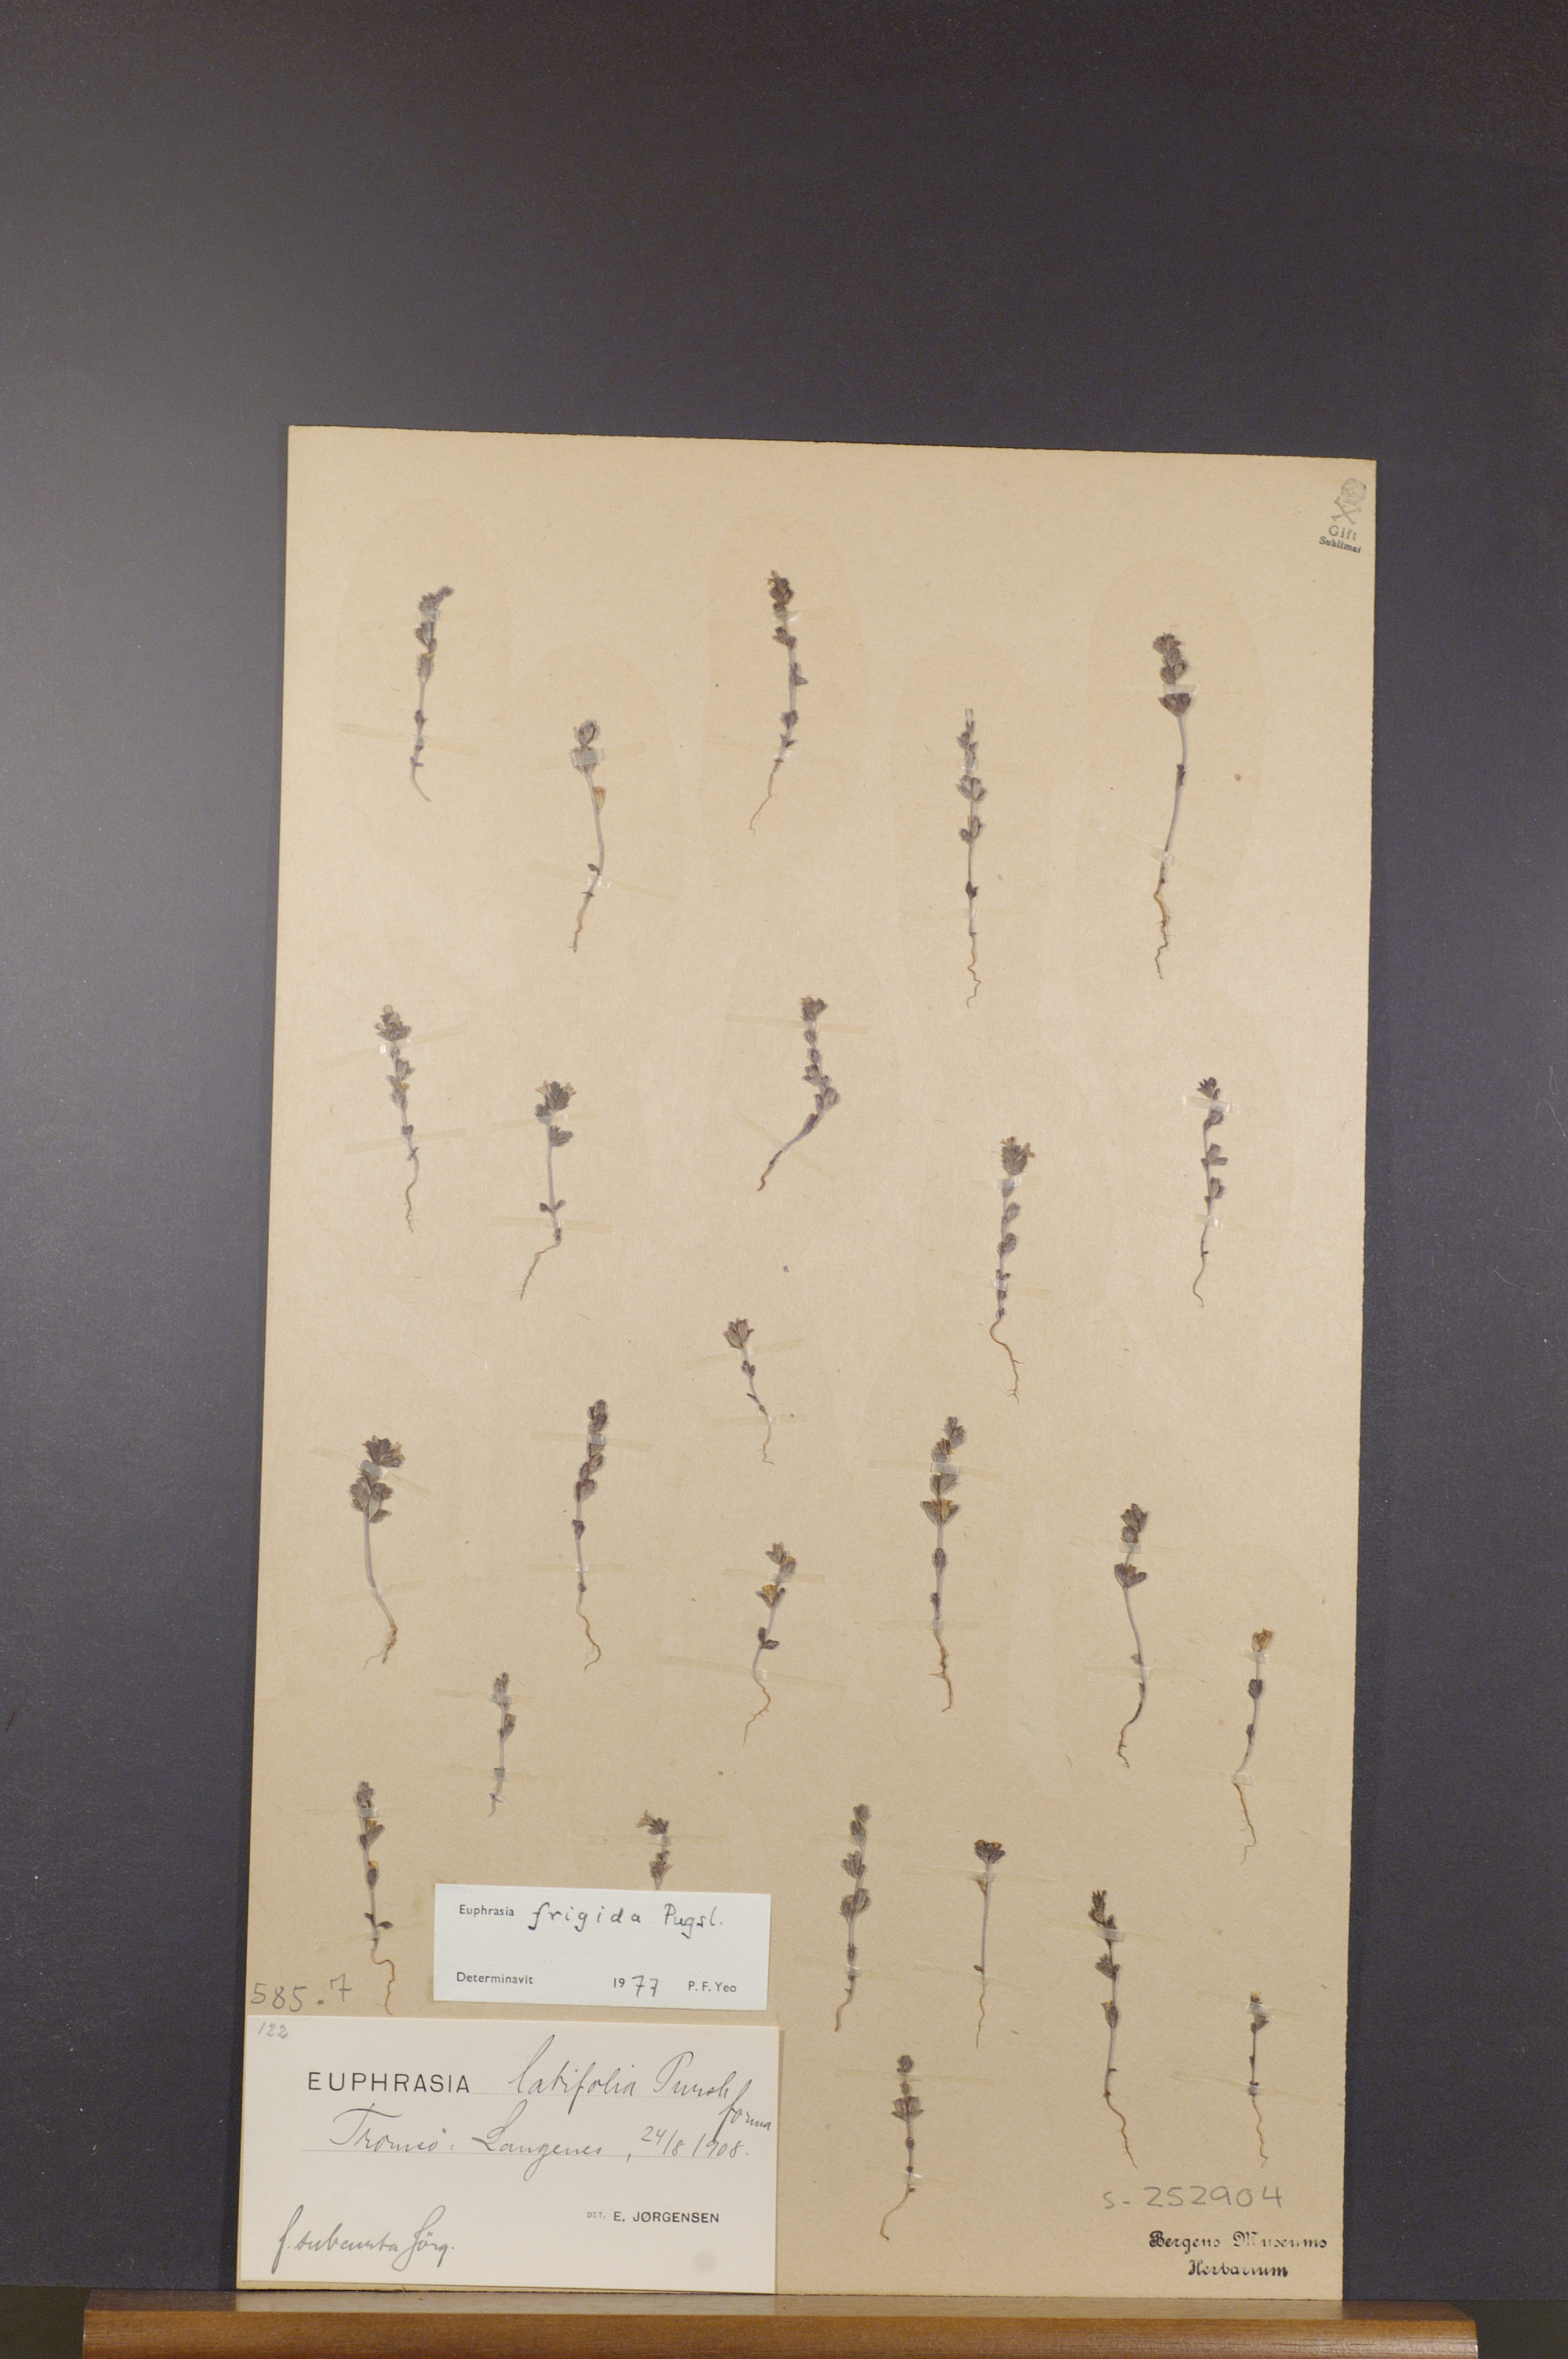 Gift
Sublimat
Euphrasia frigida Pugsl.
Determinavit 1977 P. F. Yeo
585.7
122
EUPHRASIA latifolia Pursh
forma
Tromsö: Langenes, 24/8 1908.
DET. E. JØRGENSEN
f. subcurta Jörg.
S-252904
Bergens Museums
Herbarium